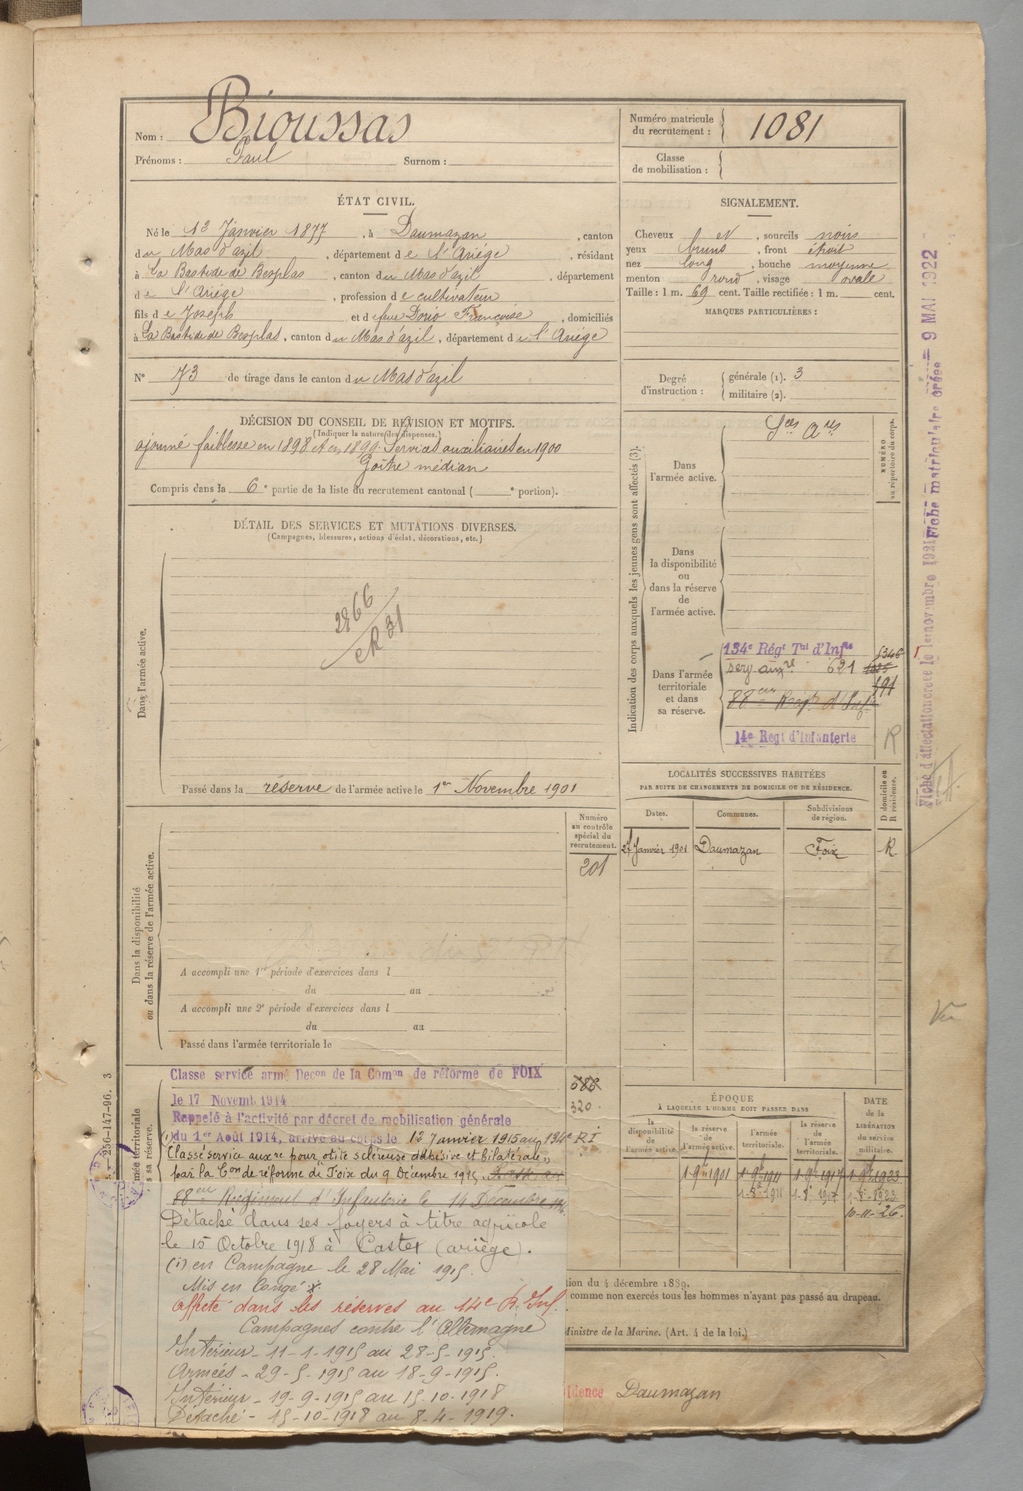 Nom : Bioussas
Prénoms : Paul Surnom :
Numéro matricule du recrutement : 1081
Classe de mobilisation :
ÉTAT CIVIL.
Né le 13 Janvier 1877, à Daumazan, canton
du Mas d'azil, département de l'Ariège, résidant
à La Bastide de Besplas, canton du Mas d'azil, département
de l'Ariège, profession de cultivateur
fils de Joseph et de feue Dorio Françoise, domiciliés
à La Bastide de Besplas, canton du Mas d'azil, département de l'Ariège
N° 73 de tirage dans le canton du Mas d'azil
SIGNALEMENT.
Cheveux et, sourcils noirs
yeux bruns, front étroit
nez long, bouche moyenne
menton rond, visage ovale
Taille : 1 m. 69 cent. Taille rectifiée : 1 m. cent.
MARQUES PARTICULIÈRES :
Degré d'instruction : générale (1). 3
militaire (2).
DÉCISION DU CONSEIL DE RÉVISION ET MOTIFS.
(Indiquer la nature des dispenses.)
ajourné faiblesse en 1898 et en 1899 Services auxiliaires en 1900
Goître médian
Compris dans la 6e partie de la liste du recrutement cantonal ( e portion).
DÉTAIL DES SERVICES ET MUTATIONS DIVERSES.
(Campagnes, blessures, actions d'éclat, décorations, etc.)
Dans l'armée active.
2966
CR 31
Passé dans la réserve de l'armée active le 1er Novembre 1901
Indication des corps auxquels les jeunes gens sont affectés (3).
NUMÉRO au répertoire du corps.
Dans l'armée active.
Ses Ares
Dans la disponibilité ou dans la réserve de l'armée active.
Dans l'armée territoriale et dans sa réserve.
134e Régt Tal d'Infie 1346
serv auxre 621
191
88eme Regt d'Inf
14e Regt d'Infanterie
R
LOCALITÉS SUCCESSIVES HABITÉES
PAR SUITE DE CHANGEMENTS DE DOMICILE OU DE RÉSIDENCE.
Dates. Communes. Subdivisions de région. D domicile ou R résidence.
27 Janvier 1901 Daumazan Foix R
Fiche d'affectation créée le 1er novembre 1921
Fiche matriculaire créée 9 MAI 1922
Dans la disponibilité ou dans la réserve de l'armée active.
Numéro au contrôle spécial du recrutement.
201
A accompli une 1re période d'exercices dans l
du au
A accompli une 2e période d'exercices dans l
du au
Passé dans l'armée territoriale le
Classé service armé Decon de la Comon de réforme de FOIX
le 17 Novemb. 1914
583
320
Rappelé à l'activité par décret de mobilisation générale
(1) du 1er Août 1914, arrivé au corps le 12 Janvier 1915 au 134e R I
Classé service auxre pour otite scléreuse adhésive et bilatérale
par la Con de réforme de Foix du 9 Décembre 1915
88eme Régiment d'Infanterie le 14 Décembre
Détaché dans ses foyers à titre agricole
le 15 Octobre 1918 à Castex (ariège).
(1) en Campagne le 28 Mai 1915.
Mis en Congé
Affecté dans les réserves au 14e R. Inf.
Campagnes contre l'Allemagne
Intérieur - 11-1-1915 au 28-5-1915.
Armées - 29-5-1915 au 18-9-1915.
Intérieur - 19-9-1915 au 15-10-1918
Détaché - 15-10-1918 au 8-4-1919.
256-147-96. 3
ÉPOQUE
À LAQUELLE L'HOMME DOIT PASSER DANS
la disponibilité de l'armée active. la réserve de l'armée active. l'armée territoriale. la réserve de l'armée territoriale.
DATE de la LIBÉRATION du service militaire.
1-9re 1901 1-9re 1911 1-9re 1917 1-9re 1923
10-11-26.
tion du 4 décembre 1889.
comme non exercés tous les hommes n'ayant pas passé au drapeau.
Ministre de la Marine. (Art. 4 de la loi.)
idence Daumazan